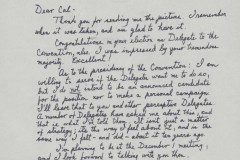 Dear Cal -
Thank you for sending me the picture. I remember
when it was taken, and am glad to have it.
Congratulations on your election as Delegate to the
Convention, also. I was impressed by your tremendous
majority. Excellent!
As to the presidency of the Convention: I am
willing to serve if the Delegates want me to do so,
but I do not intend to be an announced candidate
for the position, nor to make a personal campaign.
I'll leave that to you and other perceptive Delegates.
A number of Delegates have asked me about this, and
that is what I've told them. It isn't just a matter
of strategy; it's the way I feel about it, and in the
same way I felt - and did - about at the
I'm planning to be at the December meeting,
and I look forward to talking with you then.